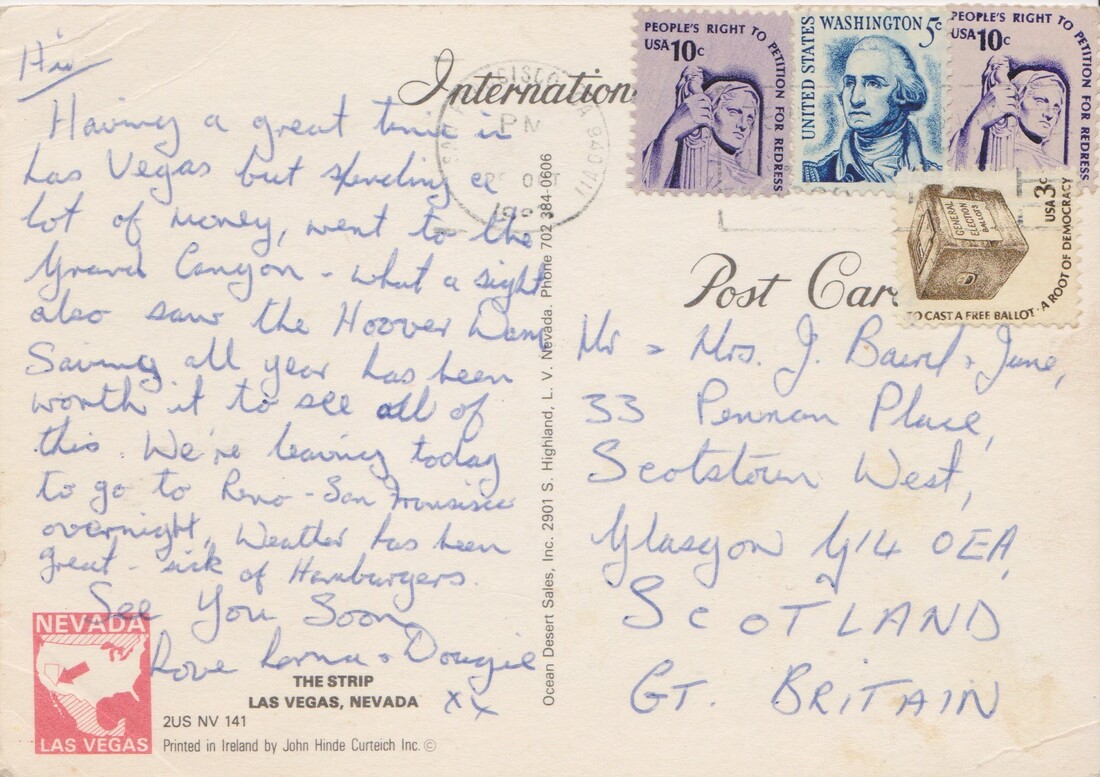 Hi
Having a great time in
Las Vegas but spending a
lot of money, went to the
Grand Canyon - what a sight
also saw the Hoover Dam
Saving all year has been
worth it to see all of
this. We're leaving today
to go to Reno - San Fransisco
overnight, Weather has been
great - sick of Hamburgers.
See You Soon
Love Lorna & Dougie
xx
NEVADA
LAS VEGAS
THE STRIP
LAS VEGAS, NEVADA
2US NV 141
Printed in Ireland by John Hinde Curteich Inc. ©
Ocean Desert Sales, Inc. 2901 S. Highland, L. V. Nevada. Phone 702 384-0606
Internation
Post Car
PM
PEOPLE'S RIGHT TO PETITION FOR REDRESS
USA 10c
UNITED STATES
WASHINGTON 5c
PEOPLE'S RIGHT TO PETITION FOR REDRESS
USA 10c
GENERAL
ELECTION
BALLOTS
USA 3c
TO CAST A FREE BALLOT · A ROOT OF DEMOCRACY
Mr & Mrs. J. Baird & June,
33 Pennan Place,
Scotstoun West,
Glasgow G14 0EA,
SCOTLAND
GT. BRITAIN